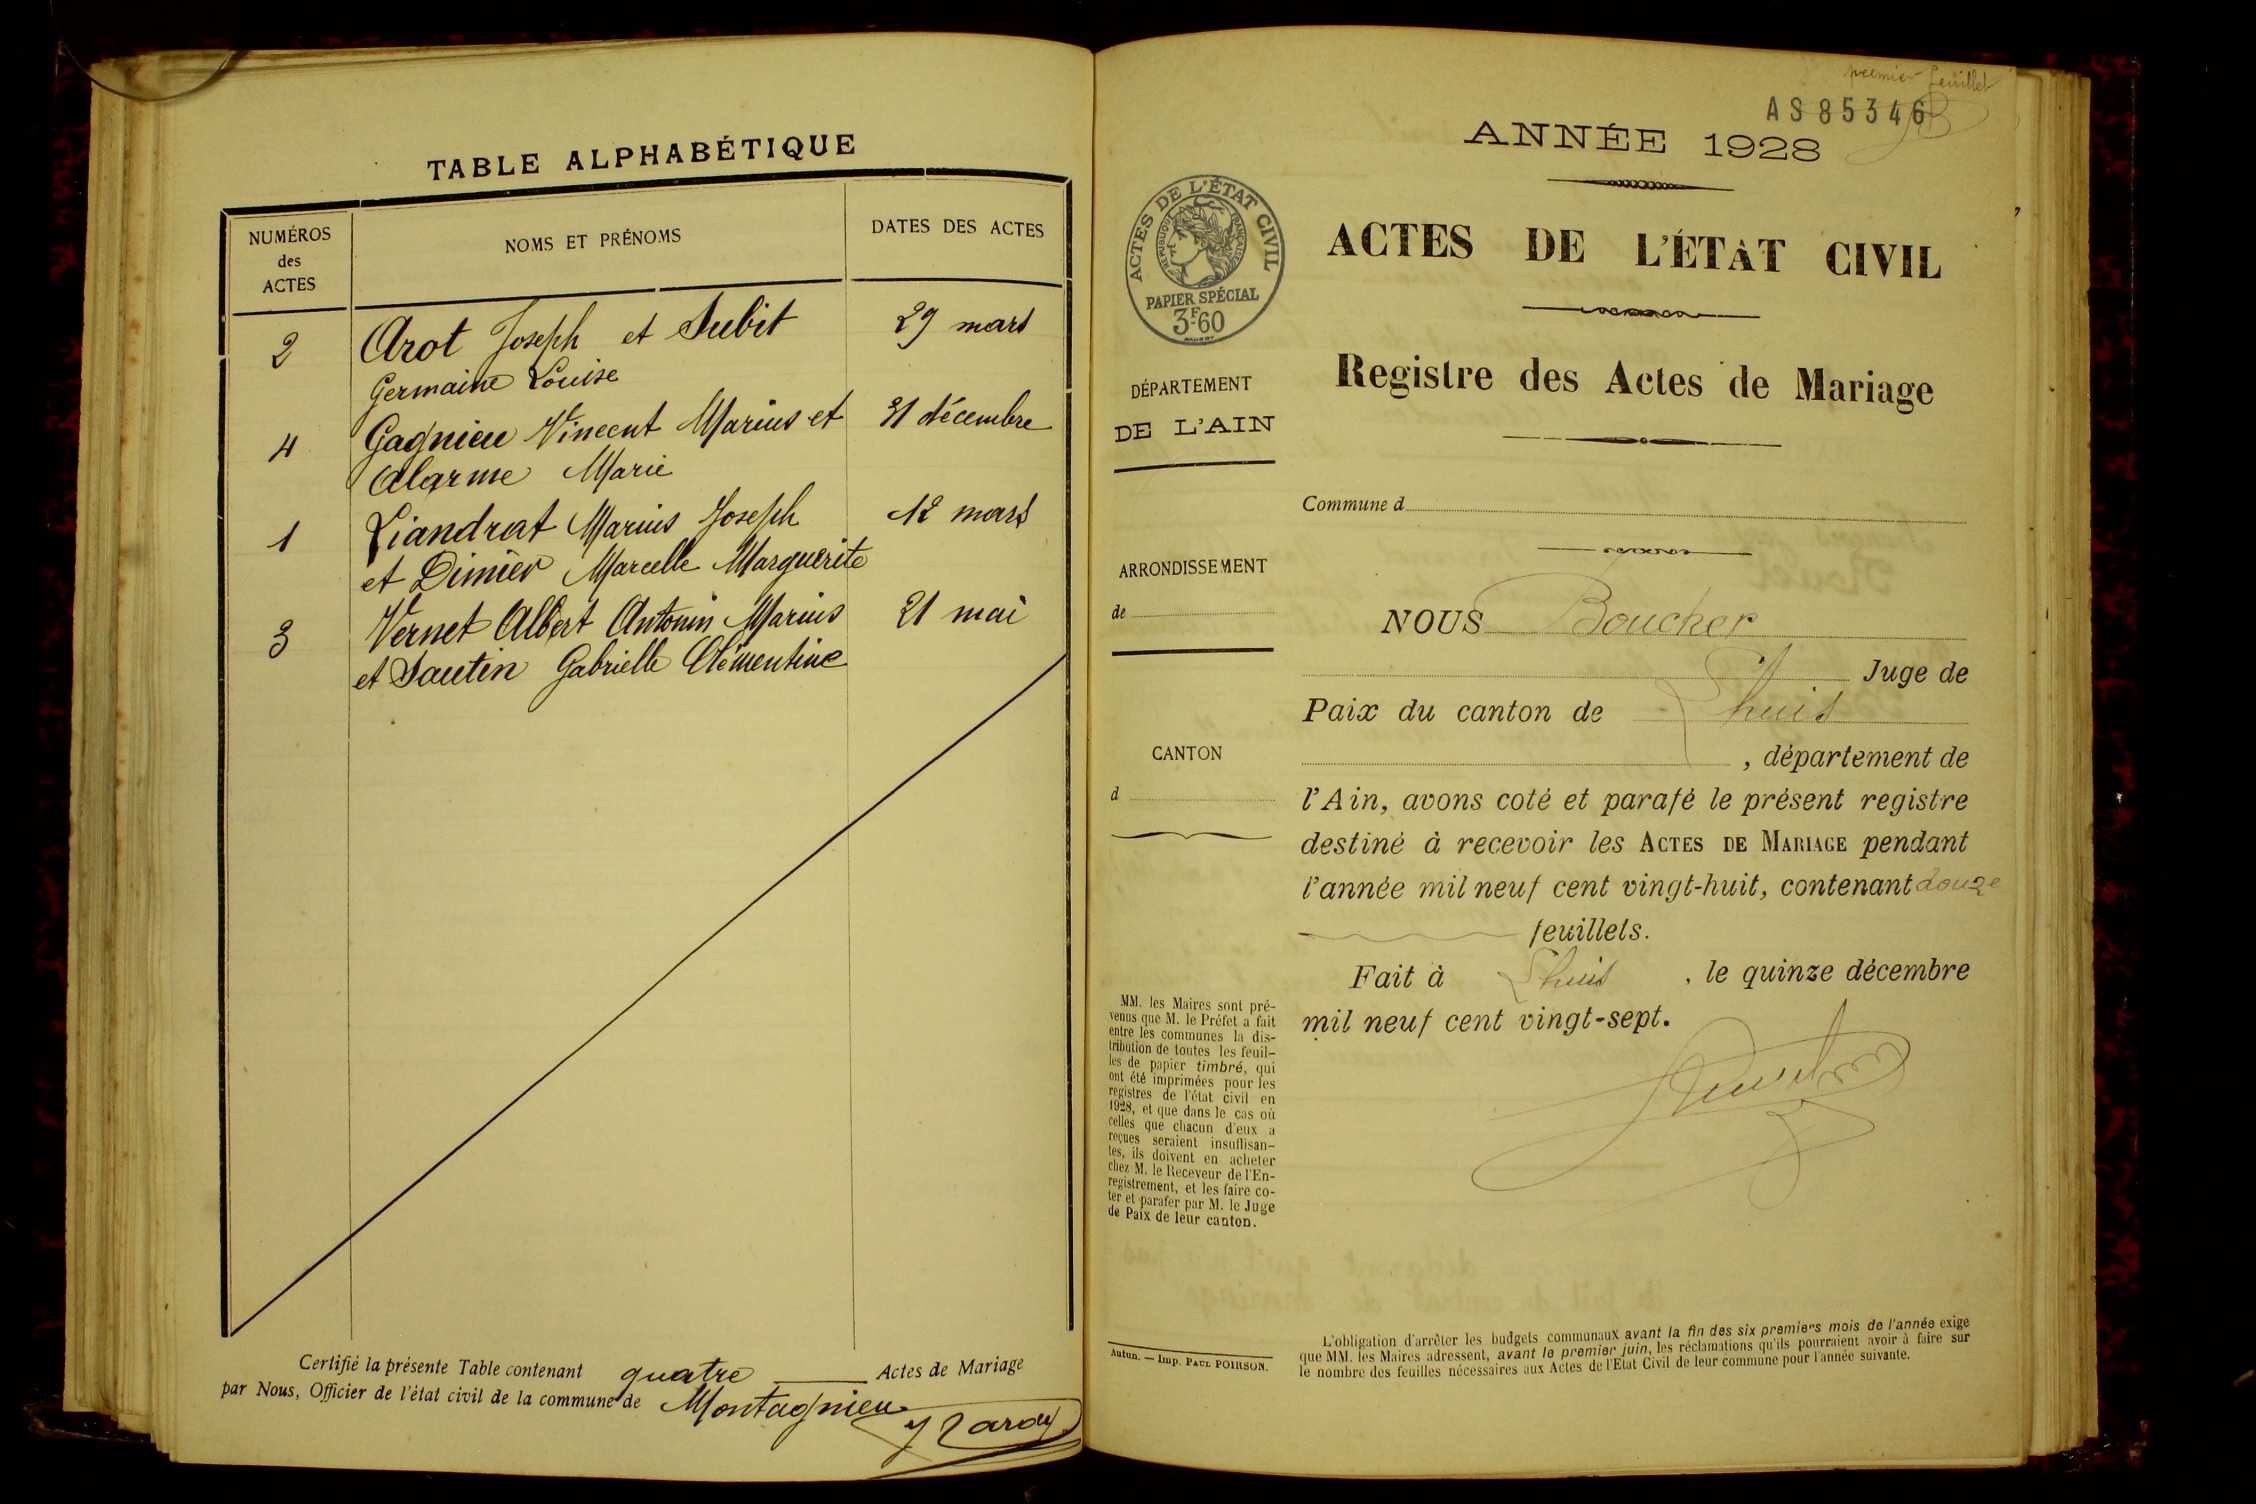 TABLE ALPHABÉTIQUE
NUMÉROS
des
ACTES
NOMS ET PRÉNOMS
DATES DES ACTES
2 Arot Joseph et Subit 29 mars
Germaine Louise
4 Gagnieu Vincent Marius et 31 décembre
Alarme Marie
1 Liandrat Marius Joseph 12 mars
et Dimier Marcelle Marguerite
3 Vernet Albert Antonin Marius 21 mai
et Sautin Gabrielle Clémentine
Certifié la présente Table contenant quatre Actes de Mariage
par Nous, Officier de l'état civil de la commune de Montagnieu
premier feuillet
AS85346
ANNÉE 1928
ACTES DE L'ÉTAT CIVIL
RÉPUBLIQUE FRANÇAISE
PAPIER SPÉCIAL
3F60
ACTES DE L'ÉTAT CIVIL
Registre des Actes de Mariage
DÉPARTEMENT
DE L'AIN
Commune d
ARRONDISSEMENT
de
NOUS Boucher
Juge de
Paix du canton de Lhuis
CANTON
d
, département de
l'Ain, avons coté et parafé le présent registre
destiné à recevoir les ACTES DE MARIAGE pendant
l'année mil neuf cent vingt-huit, contenant douze
feuillets.
Fait à Lhuis , le quinze décembre
mil neuf cent vingt-sept.
MM. les Maires sont pré-
venus que M. le Préfet a fait
entre les communes la dis-
tribution de toutes les feuil-
les de papier timbré, qui
ont été imprimées pour les
registres de l'état civil en
1928, et que dans le cas où
celles que chacun d'eux a
reçues seraient insuffisan-
tes, ils doivent en acheter
chez M. le Receveur de l'En-
registrement, et les faire co-
ter et parafer par M. le Juge
de Paix de leur canton.
Autun. — Imp. PAUL POIRSON.
L'obligation d'arrêter les budgets communaux avant la fin des six premiers mois de l'année exige
que MM. les Maires adressent, avant le premier juin, les réclamations qu'ils pourraient avoir à faire sur
le nombre des feuilles nécessaires aux Actes de l'Etat Civil de leur commune pour l'année suivante.